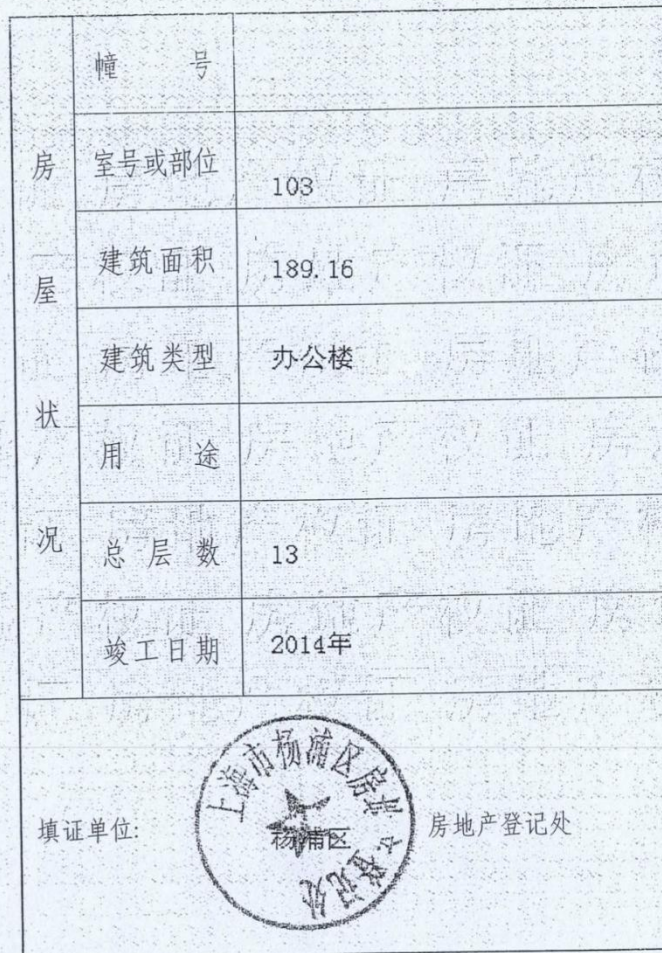 房屋状况
幢 号
室号或部位 103
建筑面积 189.16
建筑类型 办公楼
用 途
总层数 13
竣工日期 2014年
填证单位: 杨浦区 房地产登记处
上海市杨浦区房地产登记处